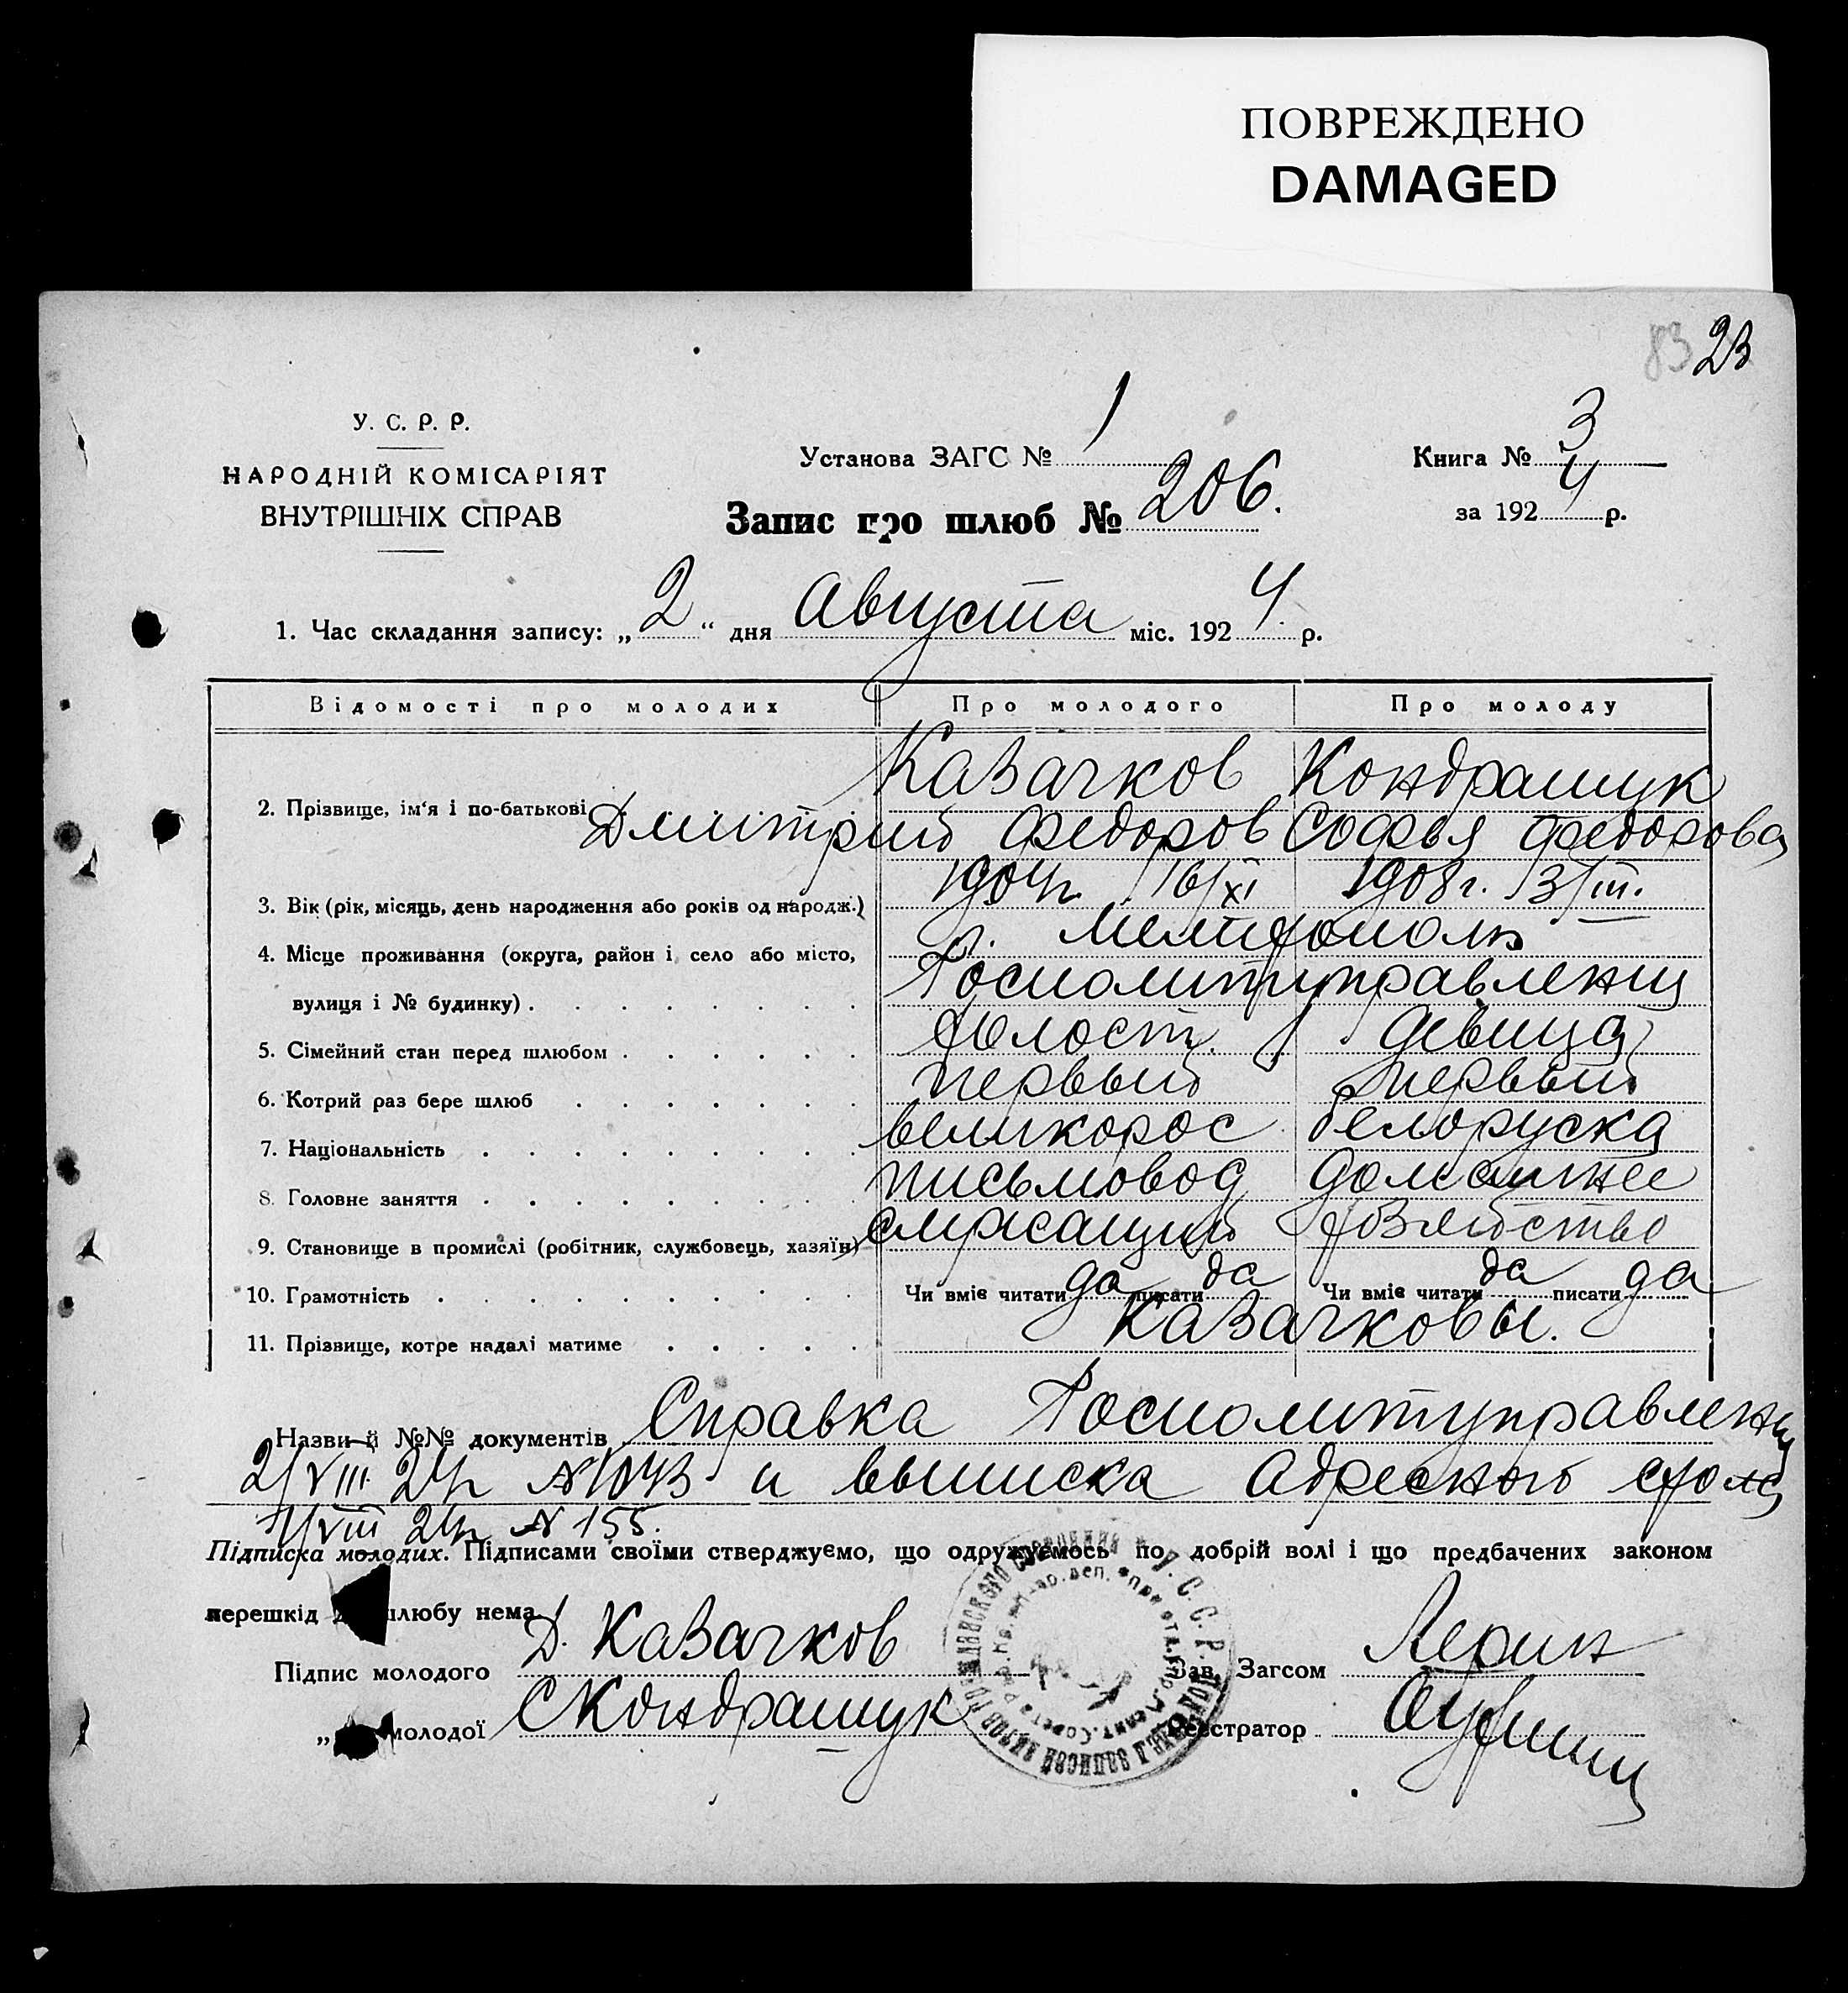 ПОВРЕЖДЕНО
DAMAGED
83 23
У. С. Р. Р.
НАРОДНІЙ КОМІСАРІЯТ
ВНУТРІШНІХ СПРАВ
Установа ЗАГС № 1
Книга № 3
за 1924 р.
Запис про шлюб № 206.
1. Час складання запису: „2“ дня Августа міс. 1924 р.
Відомості про молодих Про молодого Про молоду
Казачков Кондрашук
2. Прізвище, ім‘я і по-батькові Дмитрий Федоров Софья Федорова
3. Вік (рік, місяць, день народження або років од народж.) 1904г 16/XI 1908г. 13/III.
4. Місце проживання (округа, район і село або місто, г. Мелитополь
вулиця і № будинку) Госполитуправления
5. Сімейний стан перед шлюбом холост. девица
6. Котрий раз бере шлюб первый первый
7. Національність великорос белоруска
8. Головне заняття письмовод домашнее
9. Становище в промислі (робітник, службовець, хазяїн) служащий хозяйство
10. Грамотність Чи вміє читати да писати да Чи вміє читати да писати да
11. Прізвище, котре надалі матиме Казачковы.
Назви й №№ документів Справка Госполитуправления
2/VIII 24г №1043 и выписка Адресного стола
1/VIII 24г № 155.
Підписка молодих. Підписами своїми стверджуємо, що одружуємось по добрій волі і що предбачених законом
перешкід шлюбу нема
Підпис молодого Д. Казачков Зав. Загсом
„ молодої С Кондрашук Реєстратор